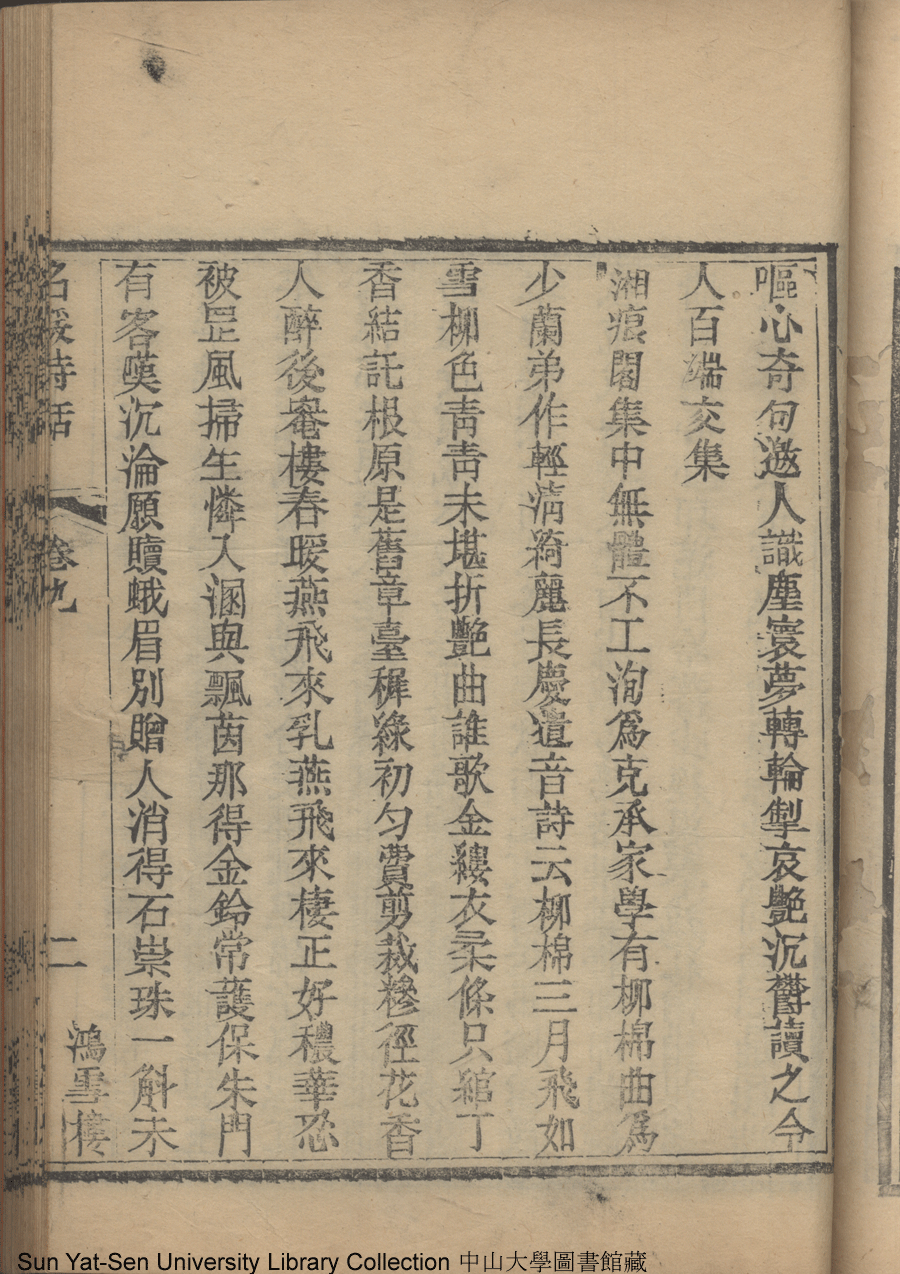 嘔心奇句邀人識塵寰夢轉輪掣哀艷沉欝讀之令
人百端交集
湘痕閣集中無體不工洵爲克承家學有柳棉曲爲
少蘭弟作輕淸綺麗長慶遺音詩云柳棉三月飛如
雪柳色靑靑未堪折艷曲誰歌金縷衣柔條只綰丁
香結託根原是舊章臺穉綠初勻費剪裁糝徑花香
人醉後罨樓春暖燕飛來乳燕飛來棲正好穠華恐
被罡風掃生憐入溷與飄茵那得金鈴常護保朱門
有客嘆沉淪願贖蛾眉別贈人消得石崇珠一斛未
名媛詩話 卷九 二 鴻雪樓
Sun Yat-Sen University Library Collection 中山大學圖書館藏